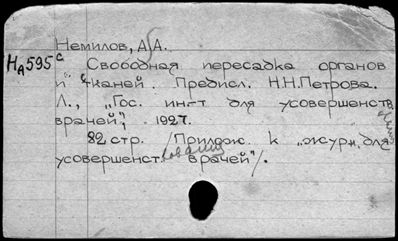 Немилов, А.А.
Нд595с Свободная пересадка органов
и тканей. Предисл. Н.Н.Петрова.
Л., „Гос. инст для усовершенств.
врачей", 1927.
82 стр. /Прилож. к „журн. для
усовершенст. врачей"/.